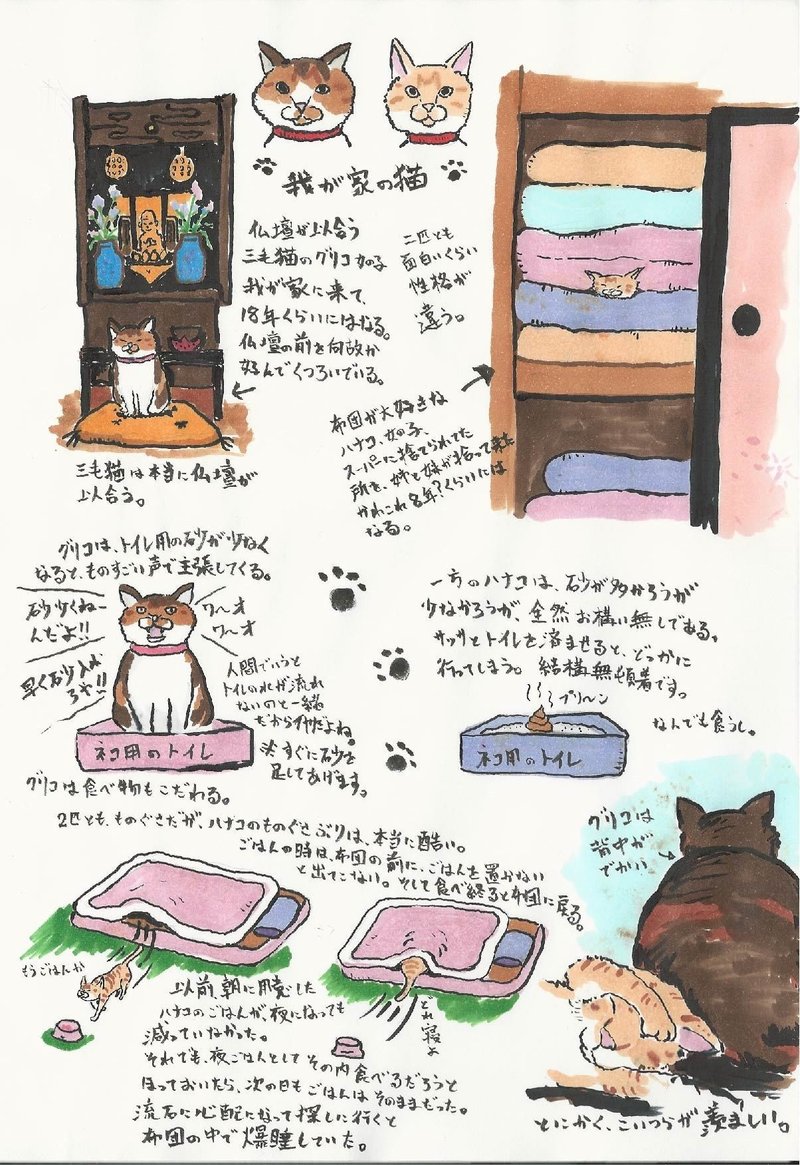 我が家の猫
仏壇が似合う
三毛猫のグリコ 女の子
我が家に来て、
18年くらいにはなる。
仏壇の前を何故か
好んでくつろいでいる。
二匹とも
面白いくらい
性格が
違う。
布団が大好きな
ハナコ、女の子、
スーパーに捨てられてた
所を、姉と妹が拾って来た
かれこれ8年?くらいには
なる。
三毛猫は本当に仏壇が
似合う。
グリコは、トイレ用の砂が少なく
なると、ものすごい声で主張してくる。
砂少くねー
んだよ!!
早く砂入れ
ろや!!
ワ〜オ
ワ〜オ
人間でいうと
トイレの水が流れ
ないのと一緒
だから仲だよね。
すぐに砂を
足してあげます。
ネコ用のトイレ
一方のハナコは、砂が多かろうが
少なかろうが、全然お構い無しである。
サッサとトイレを済ませると、どっかに
行ってしまう。結構無頓着です。
ブリ〜ン
ネコ用のトイレ
なんでも食うし。
グリコは食べ物もこだわる。
2匹とも、ものぐさだが、ハナコのものぐさぶりは、本当に酷い。
ごはんの時は、布団の前に、ごはんを置かない
と出てこない。そして食べ終ると布団に戻る。
グリコは
背中が
でかい
もうごはんか
どれ寝よ
以前、朝に用意した
ハナコのごはんが、夜になっても
減っていなかった。
それでも、夜ごはんとしてその内食べるだろうと
ほっておいたら、次の日もごはんはそのままだった。
流石に心配になって探しに行くと
布団の中で爆睡していた。
とにかく、こいつらが羨ましい。